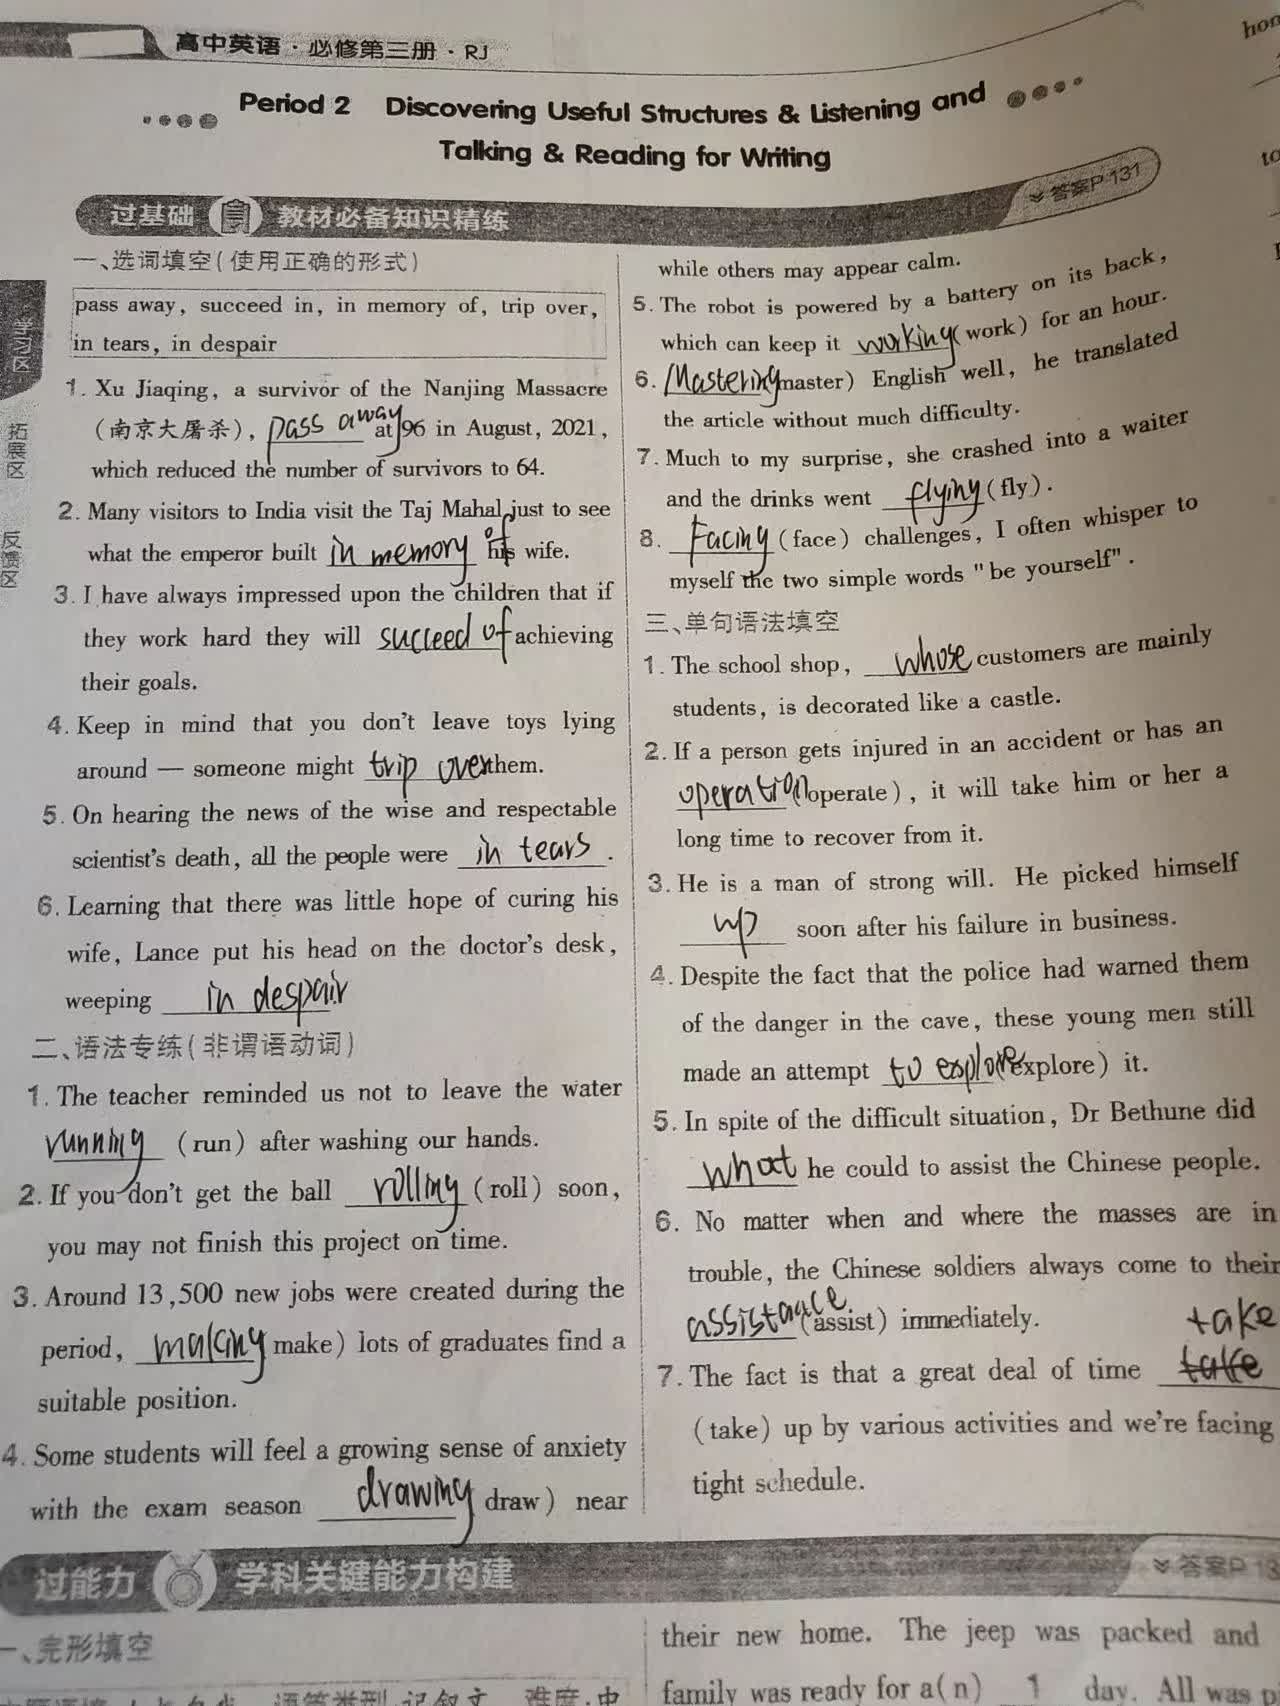 高中英语·必修第三册·RJ
Period 2 Discovering Useful Structures & Listening and
Talking & Reading for Writing
过基础 教材必备知识精练
答案P 131
一、选词填空(使用正确的形式)
pass away, succeed in, in memory of, trip over,
in tears, in despair
1. Xu Jiaqing, a survivor of the Nanjing Massacre
(南京大屠杀), pass away at 96 in August, 2021,
which reduced the number of survivors to 64.
2. Many visitors to India visit the Taj Mahal just to see
what the emperor built in memory of his wife.
3. I have always impressed upon the children that if
they work hard they will succeed of achieving
their goals.
4. Keep in mind that you don't leave toys lying
around — someone might trip over them.
5. On hearing the news of the wise and respectable
scientist's death, all the people were in tears .
6. Learning that there was little hope of curing his
wife, Lance put his head on the doctor's desk,
weeping in despair
二、语法专练(非谓语动词)
1. The teacher reminded us not to leave the water
running (run) after washing our hands.
2. If you don't get the ball rolling (roll) soon,
you may not finish this project on time.
3. Around 13,500 new jobs were created during the
period, making (make) lots of graduates find a
suitable position.
4. Some students will feel a growing sense of anxiety
with the exam season drawing draw) near
while others may appear calm.
5. The robot is powered by a battery on its back,
which can keep it working (work) for an hour.
6. Mastering master) English well, he translated
the article without much difficulty.
7. Much to my surprise, she crashed into a waiter
and the drinks went flying (fly).
8. Facing (face) challenges, I often whisper to
myself the two simple words "be yourself".
三、单句语法填空
1. The school shop, whose customers are mainly
students, is decorated like a castle.
2. If a person gets injured in an accident or has an
operation (operate), it will take him or her a
long time to recover from it.
3. He is a man of strong will. He picked himself
up soon after his failure in business.
4. Despite the fact that the police had warned them
of the danger in the cave, these young men still
made an attempt to explore (explore) it.
5. In spite of the difficult situation, Dr Bethune did
what he could to assist the Chinese people.
6. No matter when and where the masses are in
trouble, the Chinese soldiers always come to their
assistance (assist) immediately.
take
7. The fact is that a great deal of time take
(take) up by various activities and we're facing
tight schedule.
学习区
拓展区
反馈区
过能力 学科关键能力构建
答案P 13
一、完形填空
their new home. The jeep was packed and
family was ready for a(n) 1 day. All was